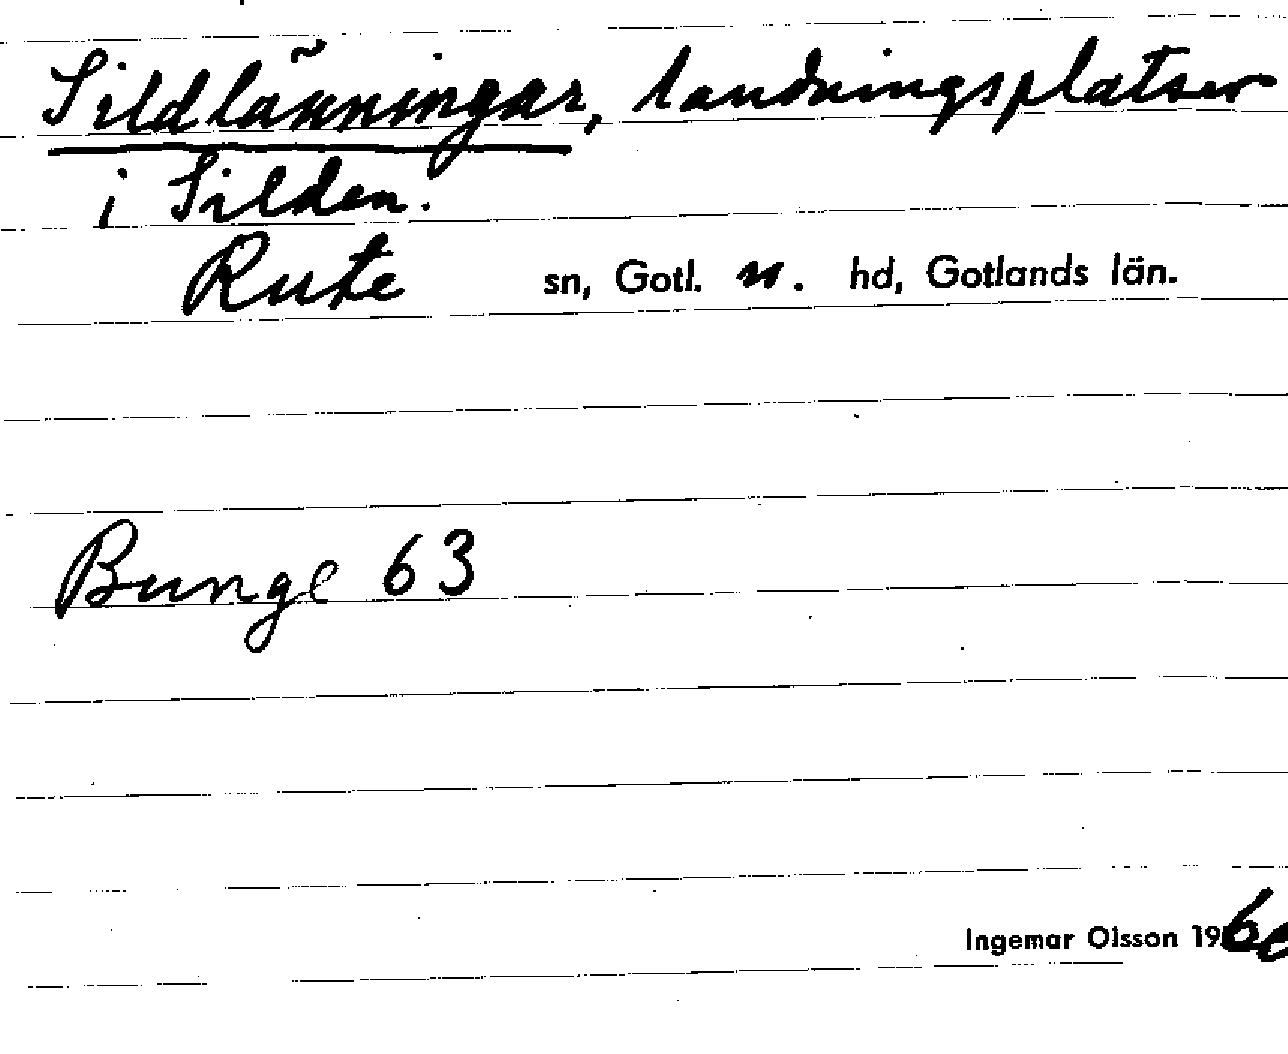 Sildlänningar, landningsplatser
i Silden.
Rute sn, Gotl. n. hd, Gotlands län.
Bunge 63
Ingemar Olsson 1960